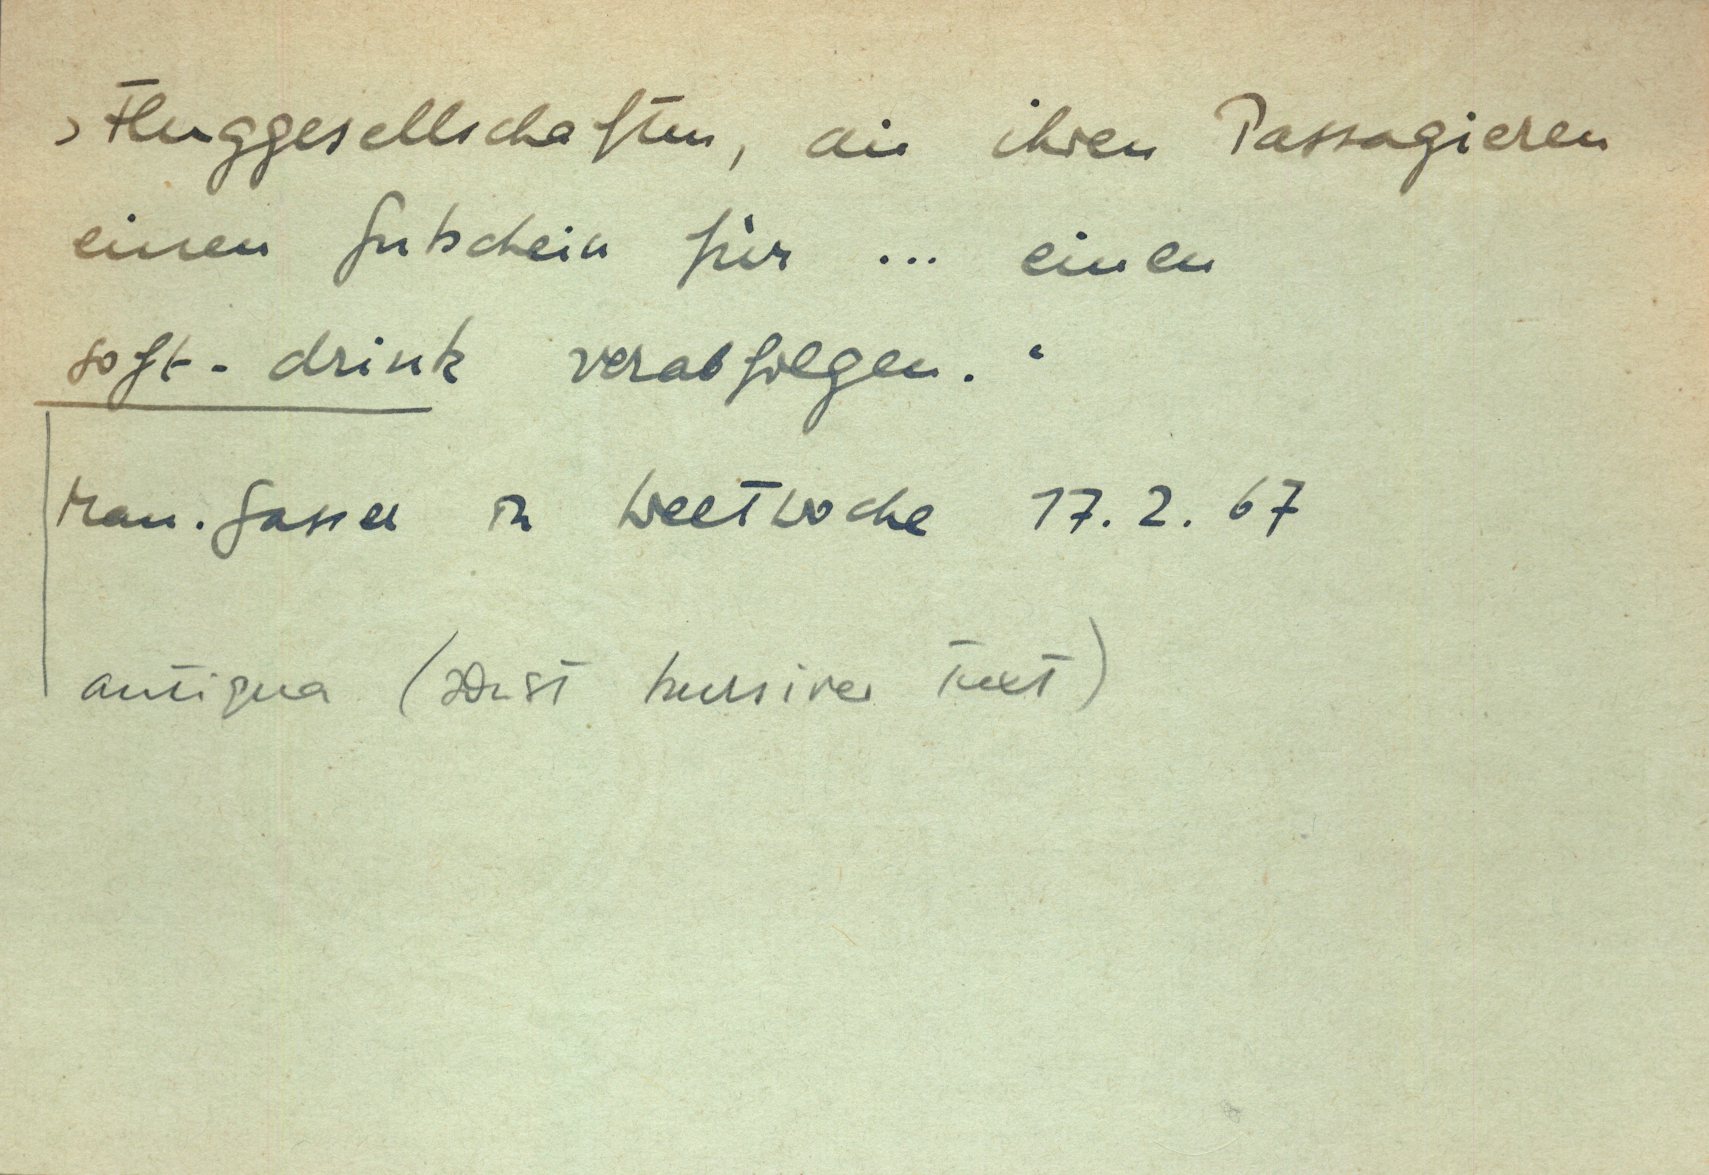 ›Fluggesellschaften, die ihren Passagieren
einen Gutschein für ... einen
soft-drink verabfolgen.‘
Man. Gasser in Weltwoche 17. 2. 67
antiqua (sonst kursiver Text)